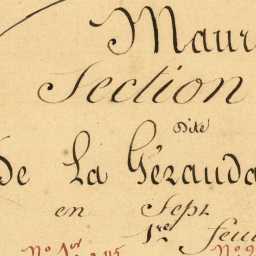 Maur
Section
Dite
De La Gérauda
en Sept
1re feui
No 1er No 9